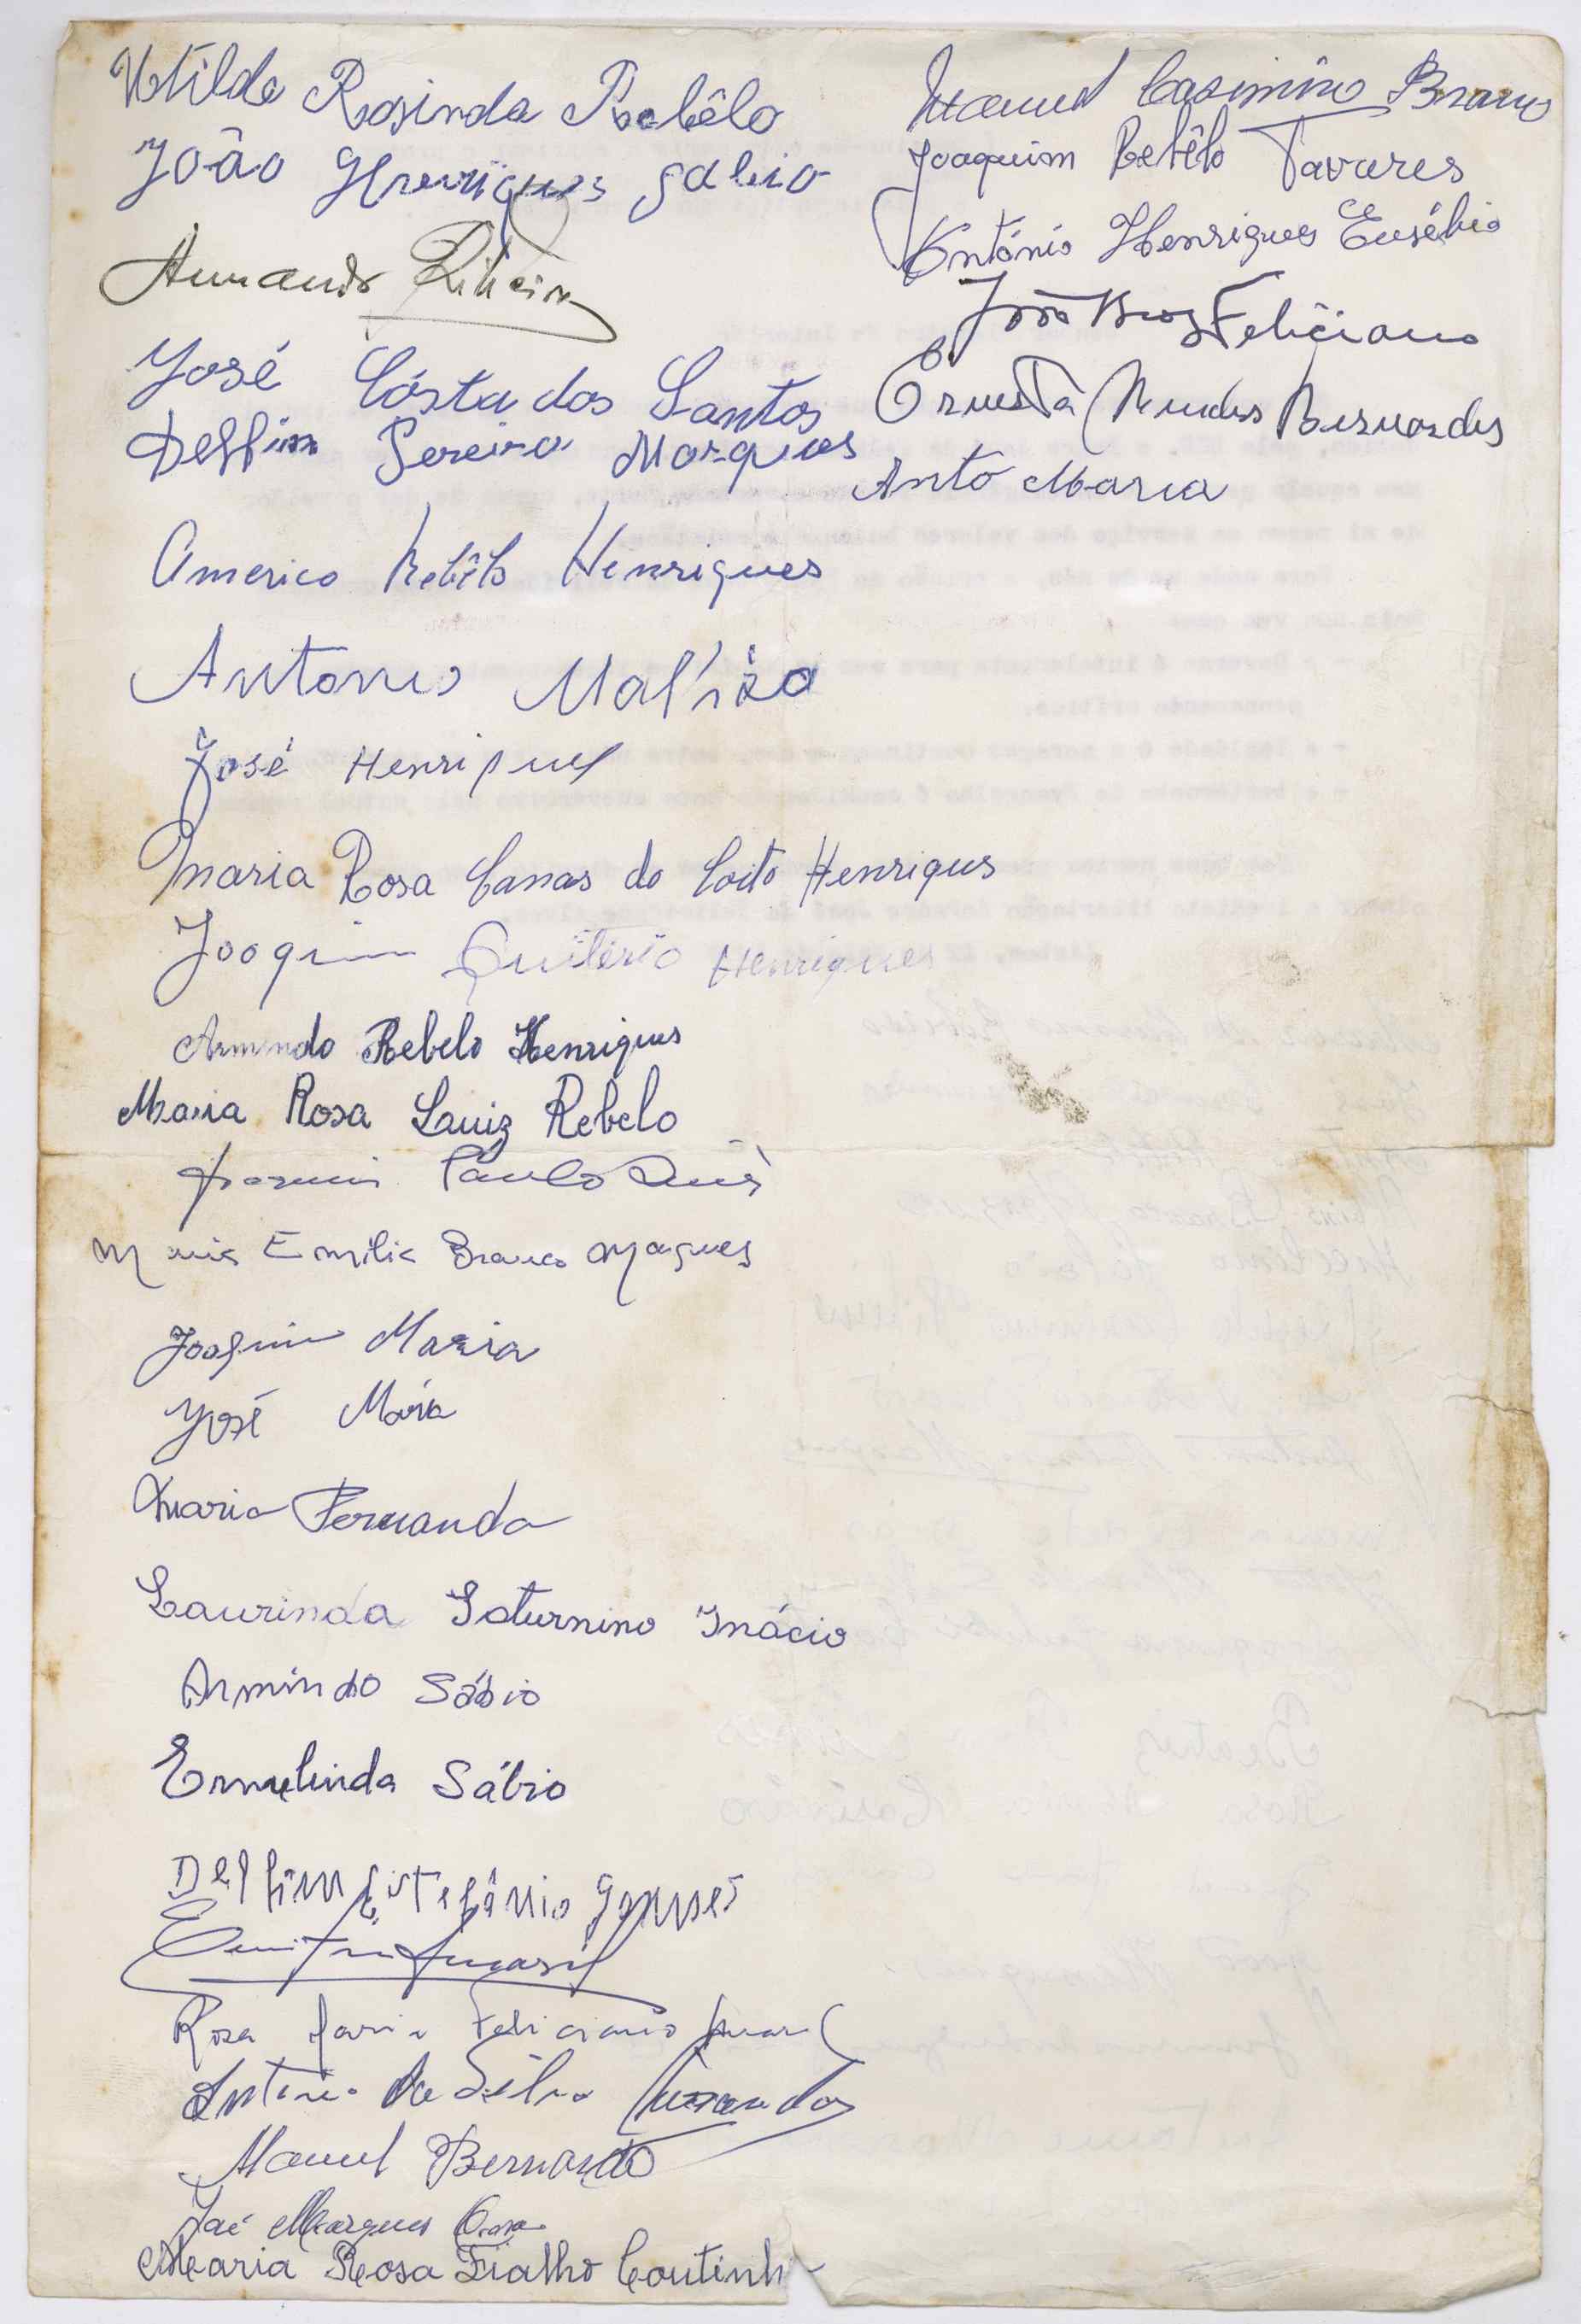 Utilda Rosinda Rebêlo
João Henriques Sabio
Armando Ribeiro
José Cósta dos Santos
Delfim Pereira Marques
Americo Rebêlo Henriques
Antonio
José Henriques
Maria Rosa Canas do Coito Henriques
Joaquim Quiterio Henriques
Armindo Rebelo Henriques
Maria Rosa Luiz Rebelo
Joaquim Paulo
Maria Emilia Branco Marques
Joaquim Maria
José Mária
Maria Fernanda
Laurinda Saturnino Inácio
Armindo Sábio
Ermelinda Sábio
Delfim Estefânio Gomes
Rosa Maria Feliciano
António da Silva
Manuel Bernardo
José Marques
Maria Rosa Fialho Coutinh
Manuel Casimiro Branco
Joaquim Rebêlo Tavares
António Henriques Eusébio
João Feliciano
Mendes Bernardes
Antó Maria